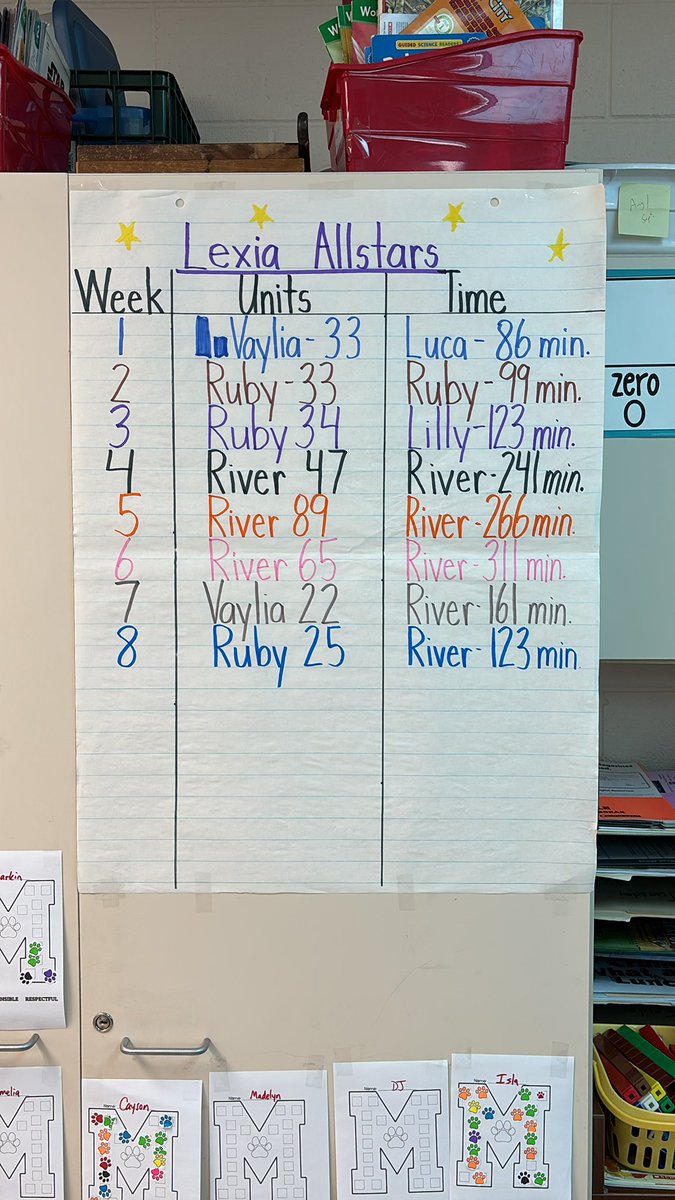 GUIDED SCIENCE READERS
Lexia Allstars
Week Units Time
1 Vaylia - 33 Luca - 86 min.
2 Ruby - 33 Ruby - 99 min.
3 Ruby 34 Lilly - 123 min.
4 River 47 River - 241 min.
5 River 89 River - 266 min.
6 River 65 River - 311 min.
7 Vaylia 22 River - 161 min.
8 Ruby 25 River - 123 min
zero
0
RESPECTFUL
Name: Cayson
Name: Madelyn
Name: DJ
Name: Isla